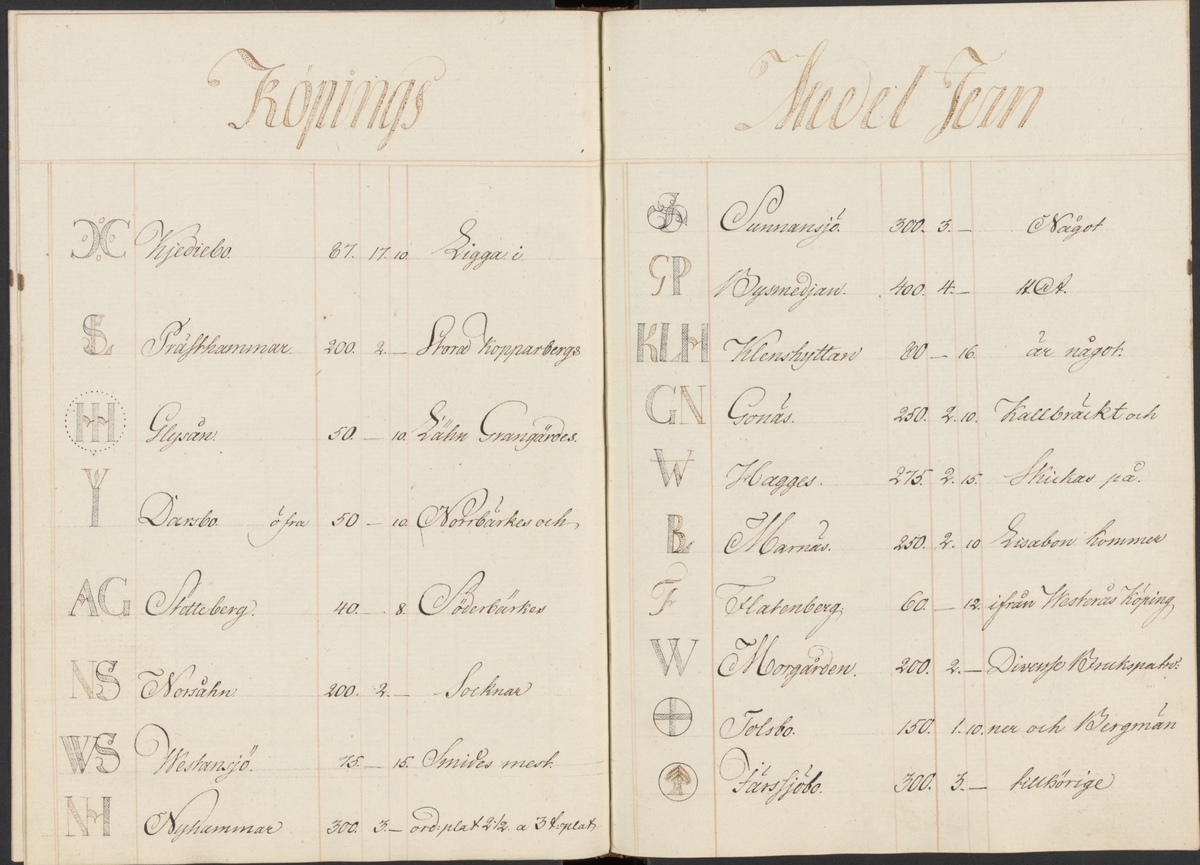 Köpings
Kjediebo. 87. 17. 10. Ligga i
SL Prästhammar. 200. 2. — Stora Kopparbergs
HH Glysån. 50. — 10. Lähn Grangärdes.
Y Darsbo öfra 50 — 10. Norrbärkes och
AG Stätteberg. 40. — 8. Söderbärkes
NS Norsåhn 200. 2. — Socknar
WS Westansjö. 75. — 15. Smides mest.
NH Nyhammar 300. 3. — ord: plat 2 1/2 a 3 t: plat
Medel Jern
Sunnansjö. 300. 3. — Något
GP Bysmedjan. 400. 4. —
KLH Klenshyttan 80 — 16. är något:
GN Gonäs. 250. 2. 10. Kallbräckt och
W Hagges. 275. 2. 15. Skickas på.
B Marnäs. 250. 2. 10 Lisabon kommer
F Flatenberg. 60. — 12. ifrån Westerås Köping
W Morgården. 200. 2. — Diverse Brukspatro:
Tolsbo. 150. 1. 10. ner och Bergmän
Färssjöbo. 300. 3. — tillhörige